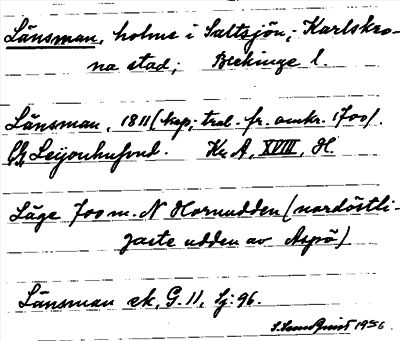 Länsman, holme i Saltsjön, Karlskro-
na stad; Blekinge l.
Länsman, 1811 (kop; trol. fr. omkr. 1700).
Leijonhufvud. Kr A, XVIII, H.
Läge 700 m. N Hornudden (nordöstli-
gaste udden av Aspö)
Länsman ek, G.11, Sj: 96.
S. Sundquist 1956